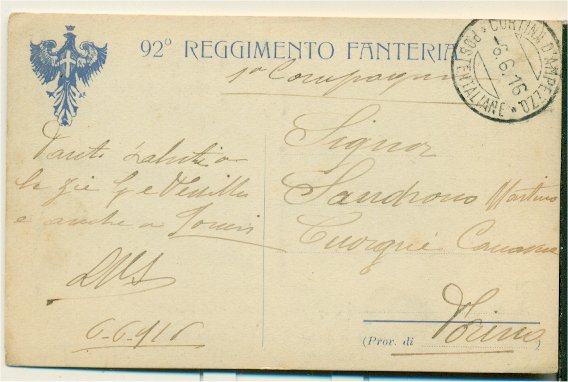 92º REGGIMENTO FANTERIA
1ª Compagnia
CORTINA D'AMPEZZO
-6.6.16
* POSTE ITALIANE *
Tanti saluti a
le zie
e anche a Louis
6-6-916
Signor
Sandrono Martino
Cuorgnè Canavese
(Prov. di Torino